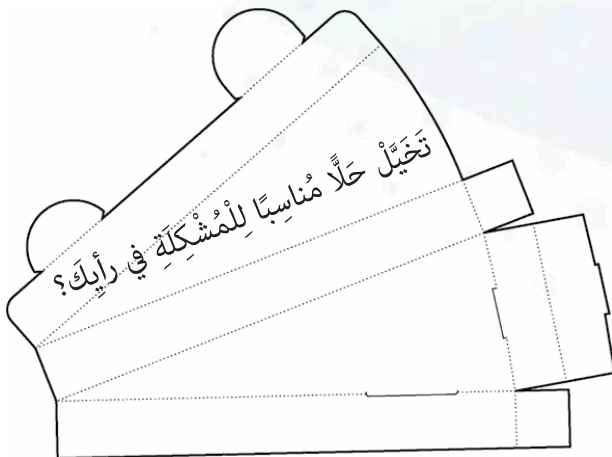 تَخَيَّلْ حَلًّا مُناسِبًا لِلْمُشْكِلَةِ في رأيِكَ؟